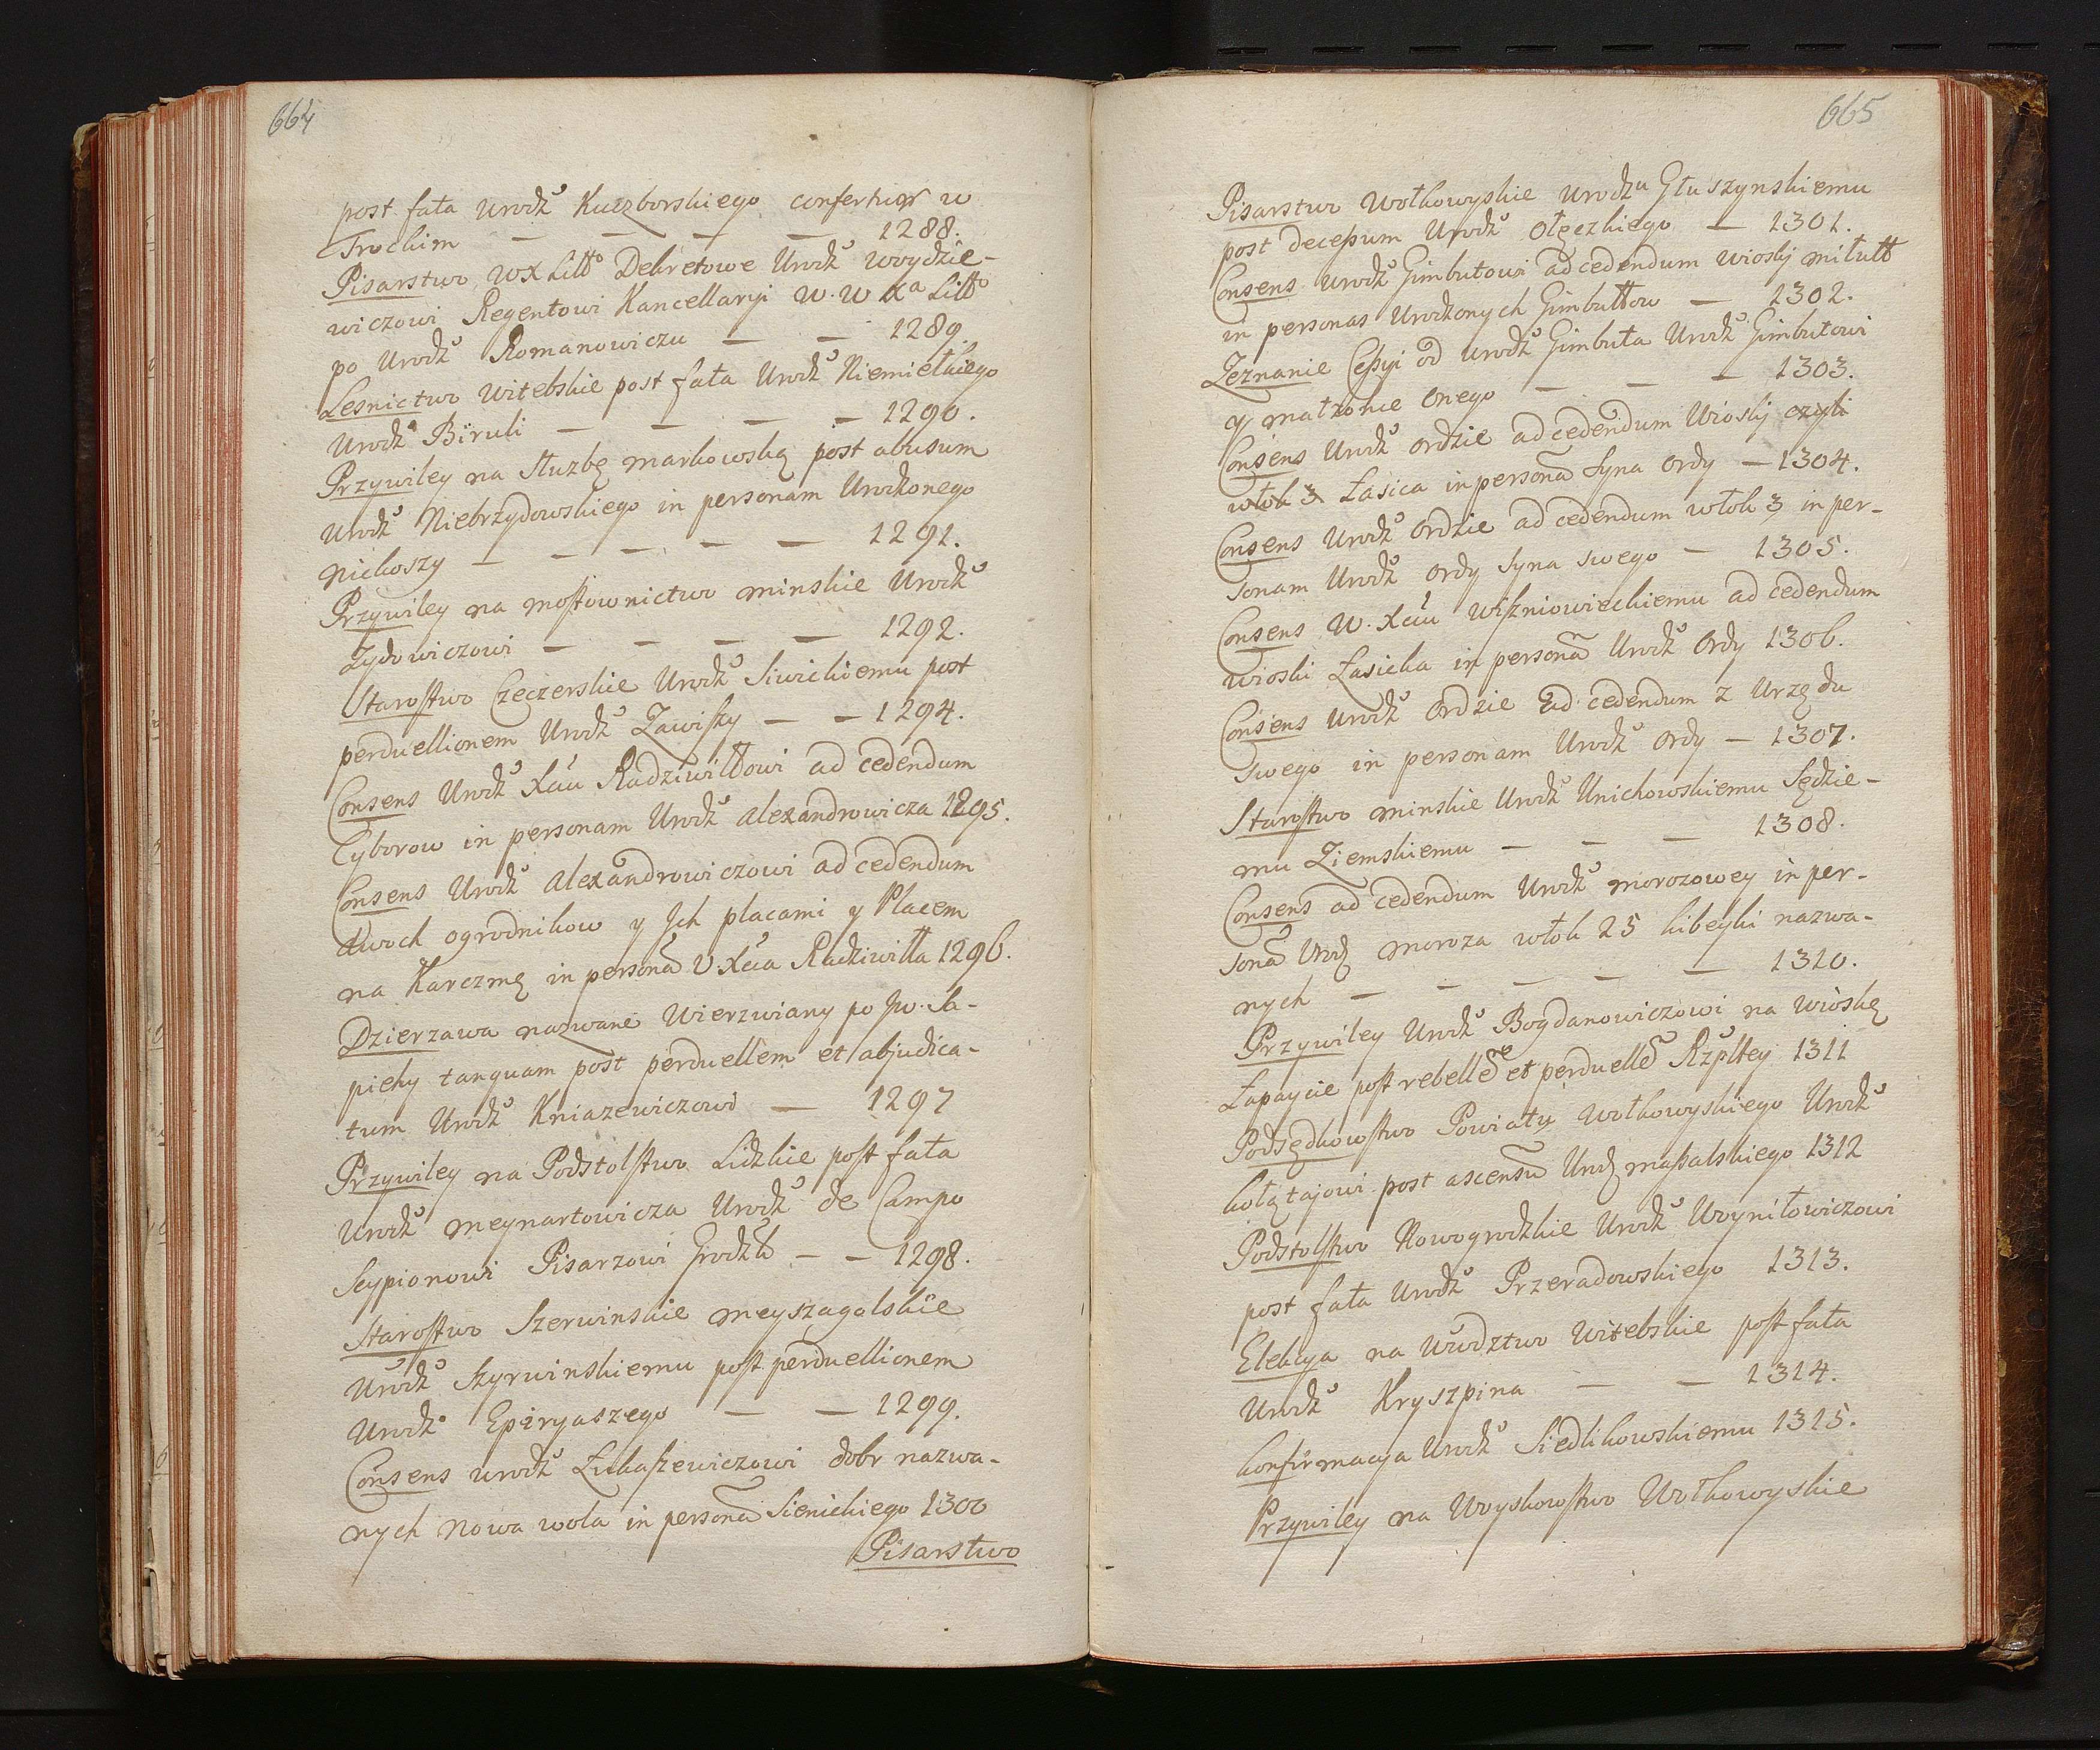 664
post fata Urodz° Kuczborskiego confertur w
Trockim — — — — 1288.
Pisarstwo WXLitt° Dekretowe Urodz° Woydzie-
wiczowi Regentowi Kancellaryi W. W Xa Litt°
po Urodz° Romanowiczu — — 1289.
Lesnictwo Witebskie post fata Urodz° Niemielkiego
Urodz° Biruli — — — — 1290.
Przywiley na Służbę markowską post abusum
Urodz° Niebrzydowskiego in personam Urodzonego
Nichoszy — — — — — 1291.
Przywiley na mostownictwo minskie Urodz°
Zydowiczowi — — — — 1292.
Starostwo Czeczerskie Urodz° Siwickiemu post
perduellionem Urodz° Zawiszy — — 1294.
Consens Urodz° Xciu Radziwiłłowi ad cedendum
Cyborow in personam Urodz° Alexandrowicza 1295.
Consens Urodz° Alexandrowiczowi ad cedendum
dwoch ogrodnikow y Ich placami y Placem
na Karczmę in personã U. Xcia Radziwiłła 1296.
Dzierzawa nazwane Wierzwiany po Jw. Sa-
piehy tanquam post perduellem et abjudica-
tum Urodz° Kniazewiczowi — 1297
Przywiley na Podstolstwo Lidzkie post fata
Urodz° Meynartowicza Urodz° de Campo
Scypionowi Pisarzowi Grodzk — — 1298.
Starostwo Szerwinskie meyszagolskie
Urodz° Szyrwinskiemu post perduellionem
Urodz° Epiryaszego — — 1299.
Consens Urodz° Łukaszewiczowi dobr nazwa-
nych Nowa wola in personã Sienickiego 1300
Pisarstwo
665
Pisarstwo Wołkowyskie Urodzu Głuszynskiemu
post decessum Urodz° Olęzkiego — 1301.
Consens Urodz° Gimbutowi ad cedendum Wioski miłutt
in personas Urodzonych Gimbuttow — 1302.
Zeznanie Cessyi od Urodz° Gimbuta Urodz° Gimbutowi
y małzonce onego — — — 1303.
Consens Urodz° Ordzie ad cedendum Wioski czyli
włok 3 Łasica in personã Syna Ordy — 1304.
Consens Urodz° Ordzie ad cedendum włok 3 in per-
sonam Urodz° Ordy Syna swego — 1305.
Consens W. Xciu Wiszniowieckiemu ad cedendum
wioski Łasicka in personã Urodz° Ordy 1306.
Consens Urodz° Ordzie ad cedendum z Urzędu
swego in personam Urodz° Ordy — 1307.
Starostwo minskie Urodz° Unichowskiemu Sędzie-
mu Ziemskiemu — — — 1308.
Consens ad cedendum Urodz° morozowey in per-
sonã Urodz moroza włok 25 kibeyki nazwa-
nych — — — — — 1310.
Przywiley Urodz° Bogdanowiczowi na wioskę
Łapaycie post rebellẽ et perduellẽ Rzpltey 1311
Podsędkowstwo Powiatu Wołkowyskiego Urodz°
kołątajowi post ascensũ Urodz massalskiego 1312
Podstolstwo Nowogrodzkie Urodz° Woyniłowiczowi
post fata Urodz° Przeradowskiego 1313.
Elekcya na Wwdztwo Witebskie post fata
Urodz° Kryszpina — — 1314.
konfirmacya Urodz° Siedlikowskiemu 1315.
Przywiley na Woyskowstwo Wołkowyskie